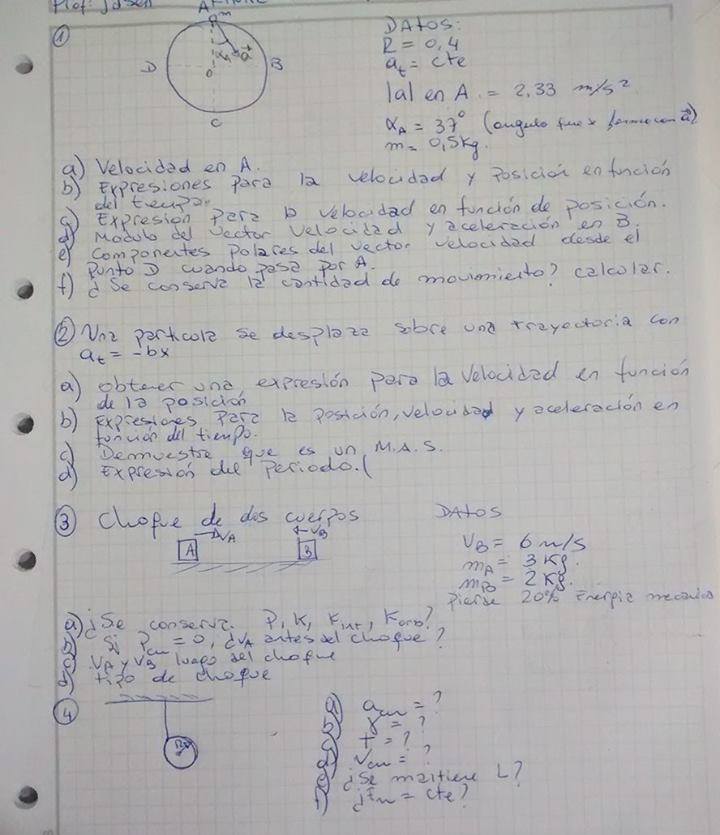 Prof:
A m
D
B
O
C
①
DATOS:
R = 0,4
at = cte
|a| en A = 2,33 m/s²
αA = 37° (angulo que forma con a)
m = 0,5kg.
a) Velocidad en A.
b) Expresiones para la velocidad y posición en función
del tiempo.
c) Expresión para la velocidad en función de posición.
d) Modulo del vector velocidad y aceleración en B.
e) Componentes polares del vector velocidad desde el
punto D cuando pasa por A.
f) ¿Se conserva la cantidad de movimiento? calcular.
② Una particula se desplaza sobre una trayectoria con
at = -bx
a) obtener una expresión para la velocidad en función
de la posición
b) Expresiones para la posición, velocidad y aceleración en
función del tiempo.
c) Demuestre que es un M.A.S.
d) Expresión del Periodo.
③ Choque de dos cuerpos
A VA VB B
DATOS
VB = 6 m/s
mA = 3 Kg.
mB = 2 Kg.
Pierde 20% Energia mecanica
a) ¿Se conserva P, K, Kint, Korb?
b) Si Pcm = 0, ¿VA antes del choque?
c) VA y VB luego del choque
d) tipo de choque
④
a) acm = ?
b) γ = ?
c) T = ?
d) Vcm = ?
e) ¿Se mantiene L?
f) ¿Em = cte?